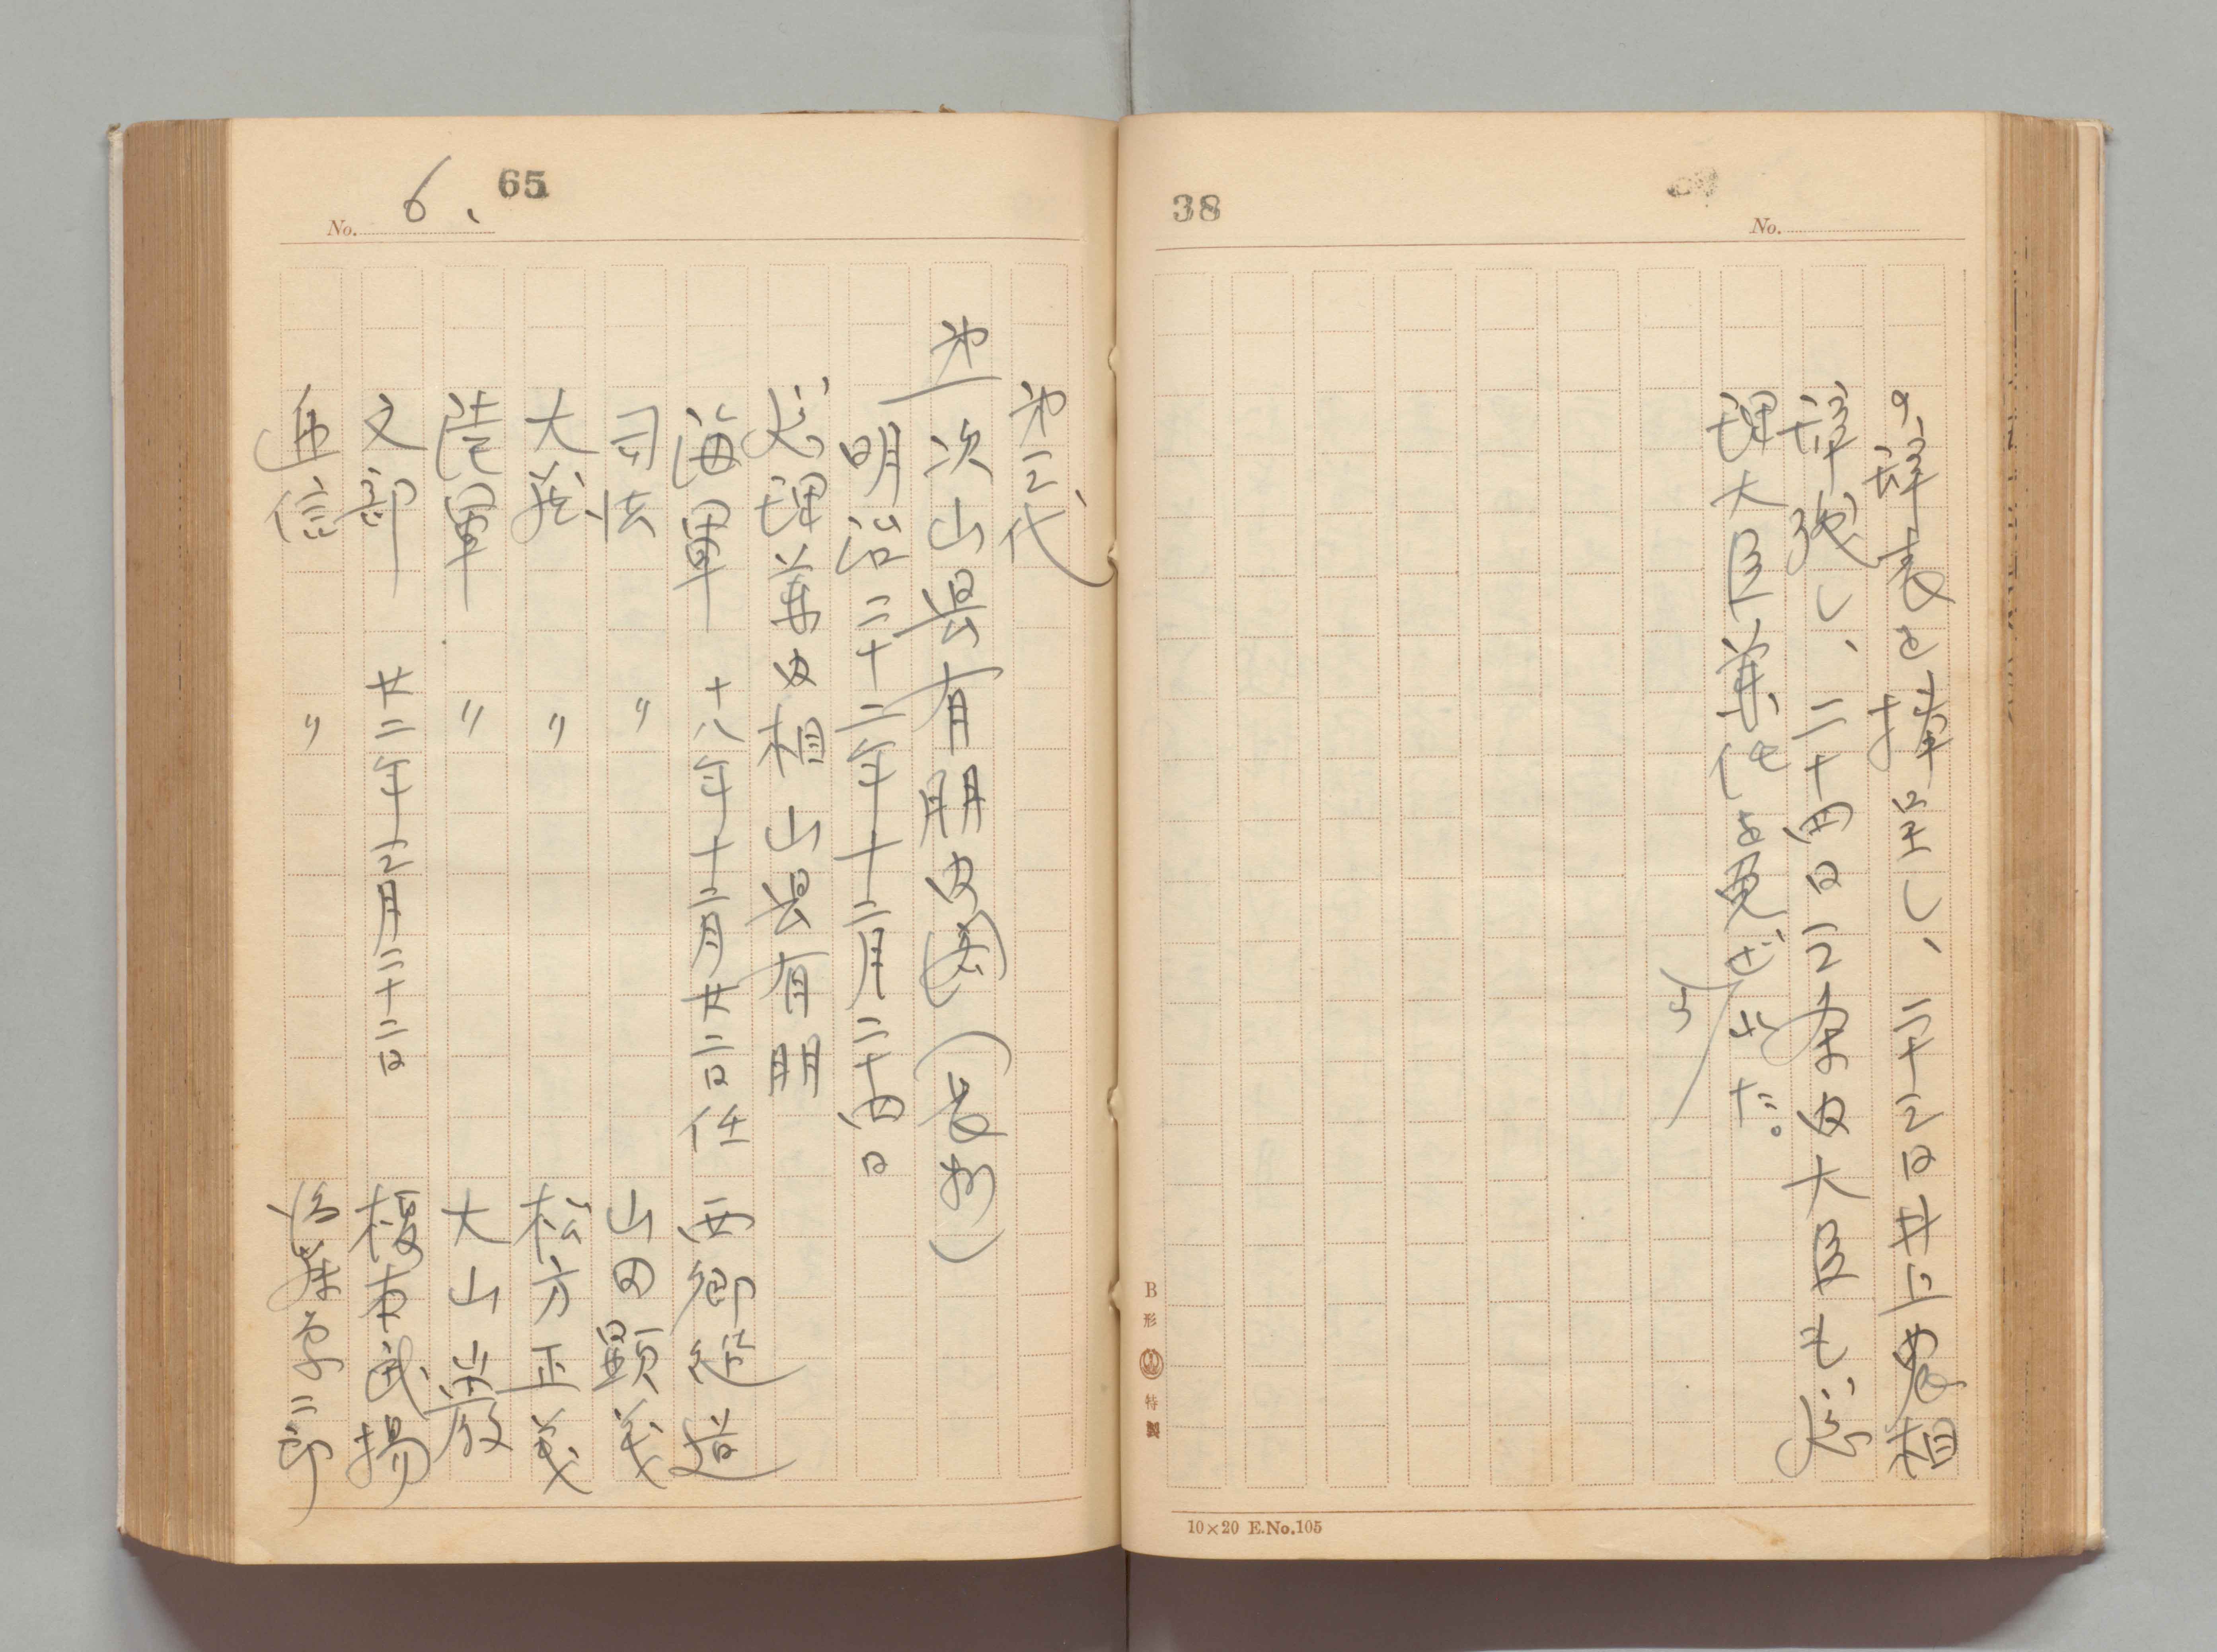 38
No.
の辞表を捧呈し、二十三日井上農相
辞職し、二十四日三条内大臣も総
理大臣兼任を免ぜられた。
B形 特製
10×20 E.No.105
65
No. 6.
第三代
第一次山県有朋内閣(長州)
明治二十二年十二月二十四日
総理兼内相 山県有朋
海軍 十八年十二月廿二日任 西郷従道
司法 〃 山田顕義
大蔵 〃 松方正義
陸軍 〃 大山巌
文部 廿二年三月二十二日 榎本武揚
逓信 〃 後藤象二郎